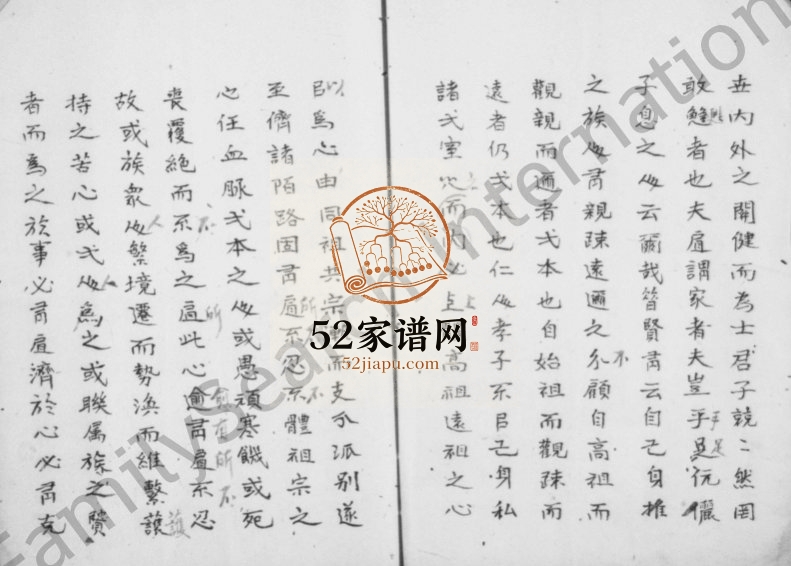 世內外之關健而為士君子兢兢然罔
敢離者也夫所謂家者夫豈手足伉儷
子息之人云爾哉昔賢有云自己身推
之族人有親疎遠邇之不顧自高祖而
觀親而邇者一本也自始祖而觀疎而
遠者仍一本也仁人孝子不以己身私
諸一室心而必上高祖遠祖之心
以為心由同祖共宗而支分派别遂
至儕諸陌路固有所不忍不體祖宗之
心任血脈一本之人或愚頑寒饑或死
喪覆絕而不為之所此心逾有所不忍
故或族衆人繁境遷而勢渙而維繫護
持之苦心或一人為之或聯属族之賢
者而為之族事必有所濟於心必有克
52家谱网
52jiapu.com
FamilySearch International